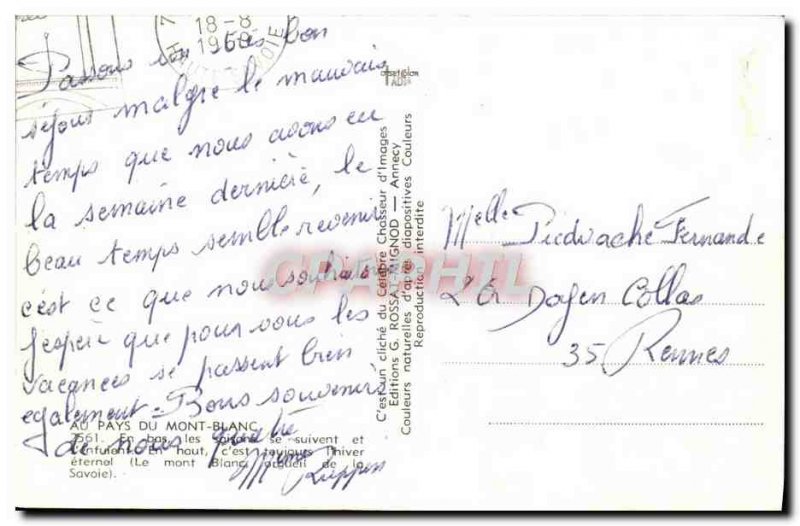 18-8
19
HAUTE SAVOIE
Passons un très bon
séjour malgré le mauvais
temps que nous avons eu
la semaine dernière, le
beau temps semble revenir
c'est ce que nous souhaitons
j'espère que pour vous les
vacances se passent bien
également - Bons souvenirs
de nous quatre
AU PAYS DU MONT-BLANC
2561. En bas, les saisons se suivent et
s'enfuient. En haut, c'est toujours l'hiver
éternel (Le mont Blanc, orgueil de la
Savoie).
C'est un cliché du Célèbre Chasseur d'Images
Editions G. ROSSAT-MIGNOD — Annecy
Couleurs naturelles d'après diapositives Couleurs
Reproduction interdite
CPAPHIL
Melle Piedvache Fernande
Doyen Collas
35 Rennes